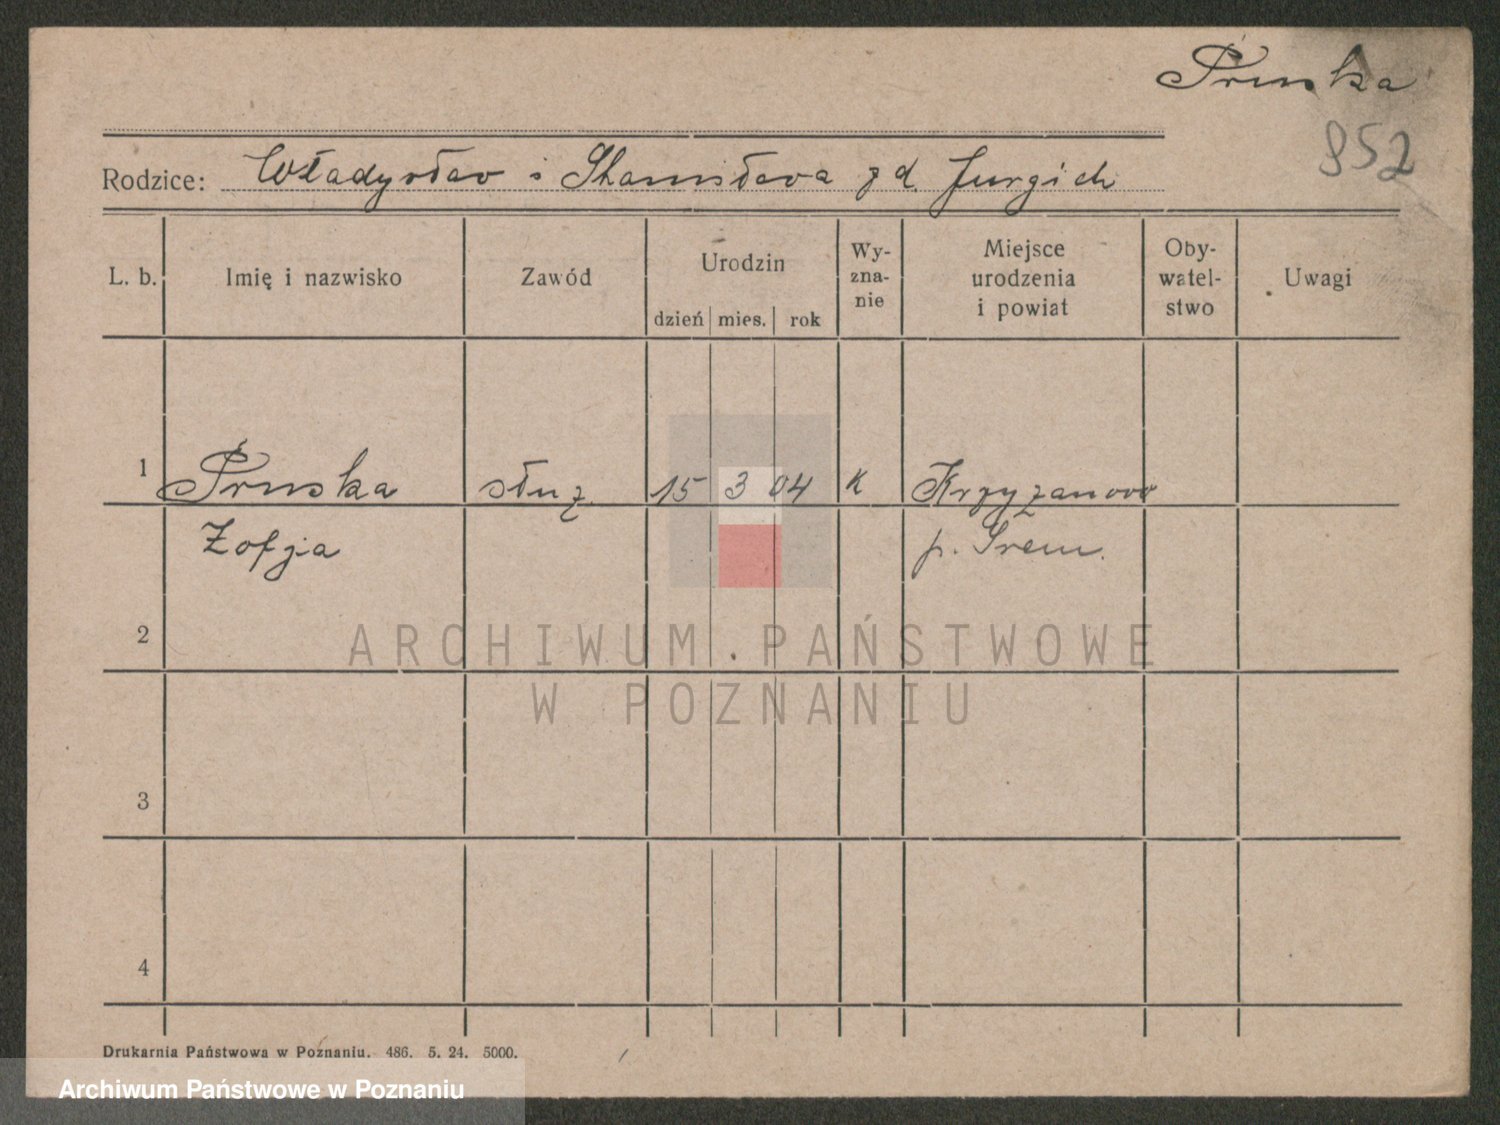 Pruska
852
Rodzice: Władysław i Stanisława z d. Jurgich
L. b. Imię i nazwisko Zawód Urodzin dzień mies. rok Wy- zna- nie Miejsce urodzenia i powiat Oby- watel- stwo Uwagi
1 Pruska służ. 15 3 04 K Krzyżanowo
Zofja p. Śrem.
2
3
4
ARCHIWUM PAŃSTWOWE
W POZNANIU
Drukarnia Państwowa w Poznaniu. 486. 5. 24. 5000.
Archiwum Państwowe w Poznaniu